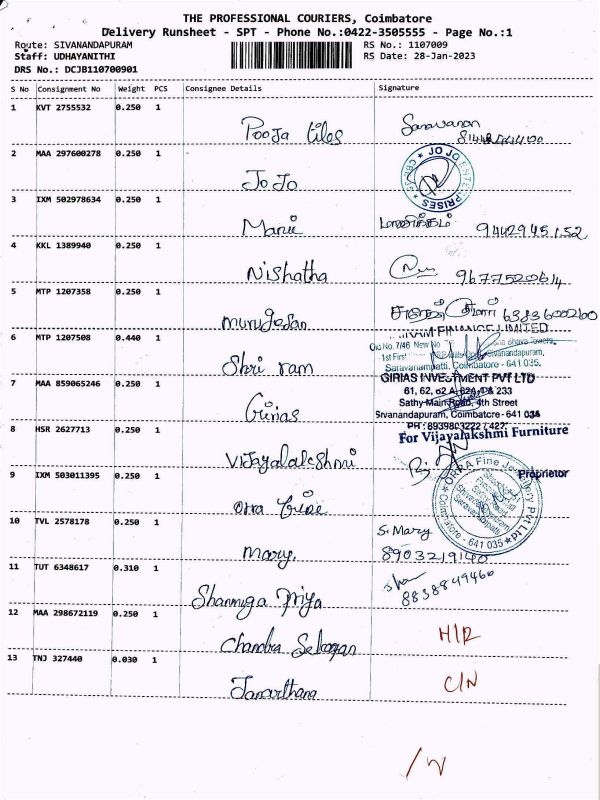 THE PROFESSIONAL COURIERS, Coimbatore
Delivery Runsheet - SPT - Phone No.:0422-3505555 - Page No.:1
Route: SIVANANDAPURAM RS No.: 1107009
Staff: UDHAYANITHI RS Date: 28-Jan-2023
DRS No.: DCJB110700901
S No Consignment No Weight PCS Consignee Details Signature
1 KVT 2755532 0.250 1
Pooja tiles Saravanan
2 MAA 297600278 0.250 1
JoJo JO JO ENTERPRISES
3 IXM 502978634 0.250 1
Manie மாணிக்கம் 9442945152
4 KKL 1389940 0.250 1
Nishatha 9677520614
5 MTP 1207358 0.250 1
murugesan 6383600260
6 MTP 1207508 0.440 1
Shri ram
RAM FINANCE LIMITED
Old No. 7/46 New No
1st First Sivanandapuram,
Saravanampatti, Coimbatore - 641 035.
7 MAA 859065246 0.250 1
Girias
GIRIAS INVESTMENT PVT LTD
61, 62, 62A, 233
Sathy Main Road, 4th Street
Sivanandapuram, Coimbatore - 641 035
PH : 8939803222 / 427
8 HSR 2627713 0.250 1
Vijayalalcshmi
For Vijayalakshmi Furniture
Proprietor
9 IXM 503011395 0.250 1
Orra fine
ORRA Fine Jewellery Pvt Ltd
Coimbatore - 641 035
10 TVL 2578178 0.250 1
mary. S. Mary
8903219140
11 TUT 6348617 0.310 1
Shanmuga Priya 8838849460
12 MAA 298672119 0.250 1
Chandra Sekagan H/R
13 TNJ 327440 0.030 1
Janarthana C/N